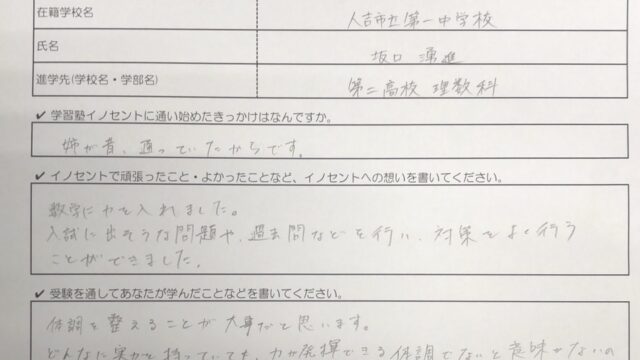 在籍学校名 人吉市立第一中学校
氏名 坂口 湧進
進学先(学校名・学部名) 第二高校 理数科
✔ 学習塾イノセントに通い始めたきっかけはなんですか。
姉が昔、通っていたからです。
✔ イノセントで頑張ったこと・よかったことなど、イノセントへの想いを書いてください。
数学に力を入れました。
入試に出そうな問題や、過去問などを行い、対策をよく行う
ことができました。
✔ 受験を通してあなたが学んだことなどを書いてください。
体調を整えることが大事だと思います。
どんなに実力を持っていても、力が発揮できる体調でないと意味がないの